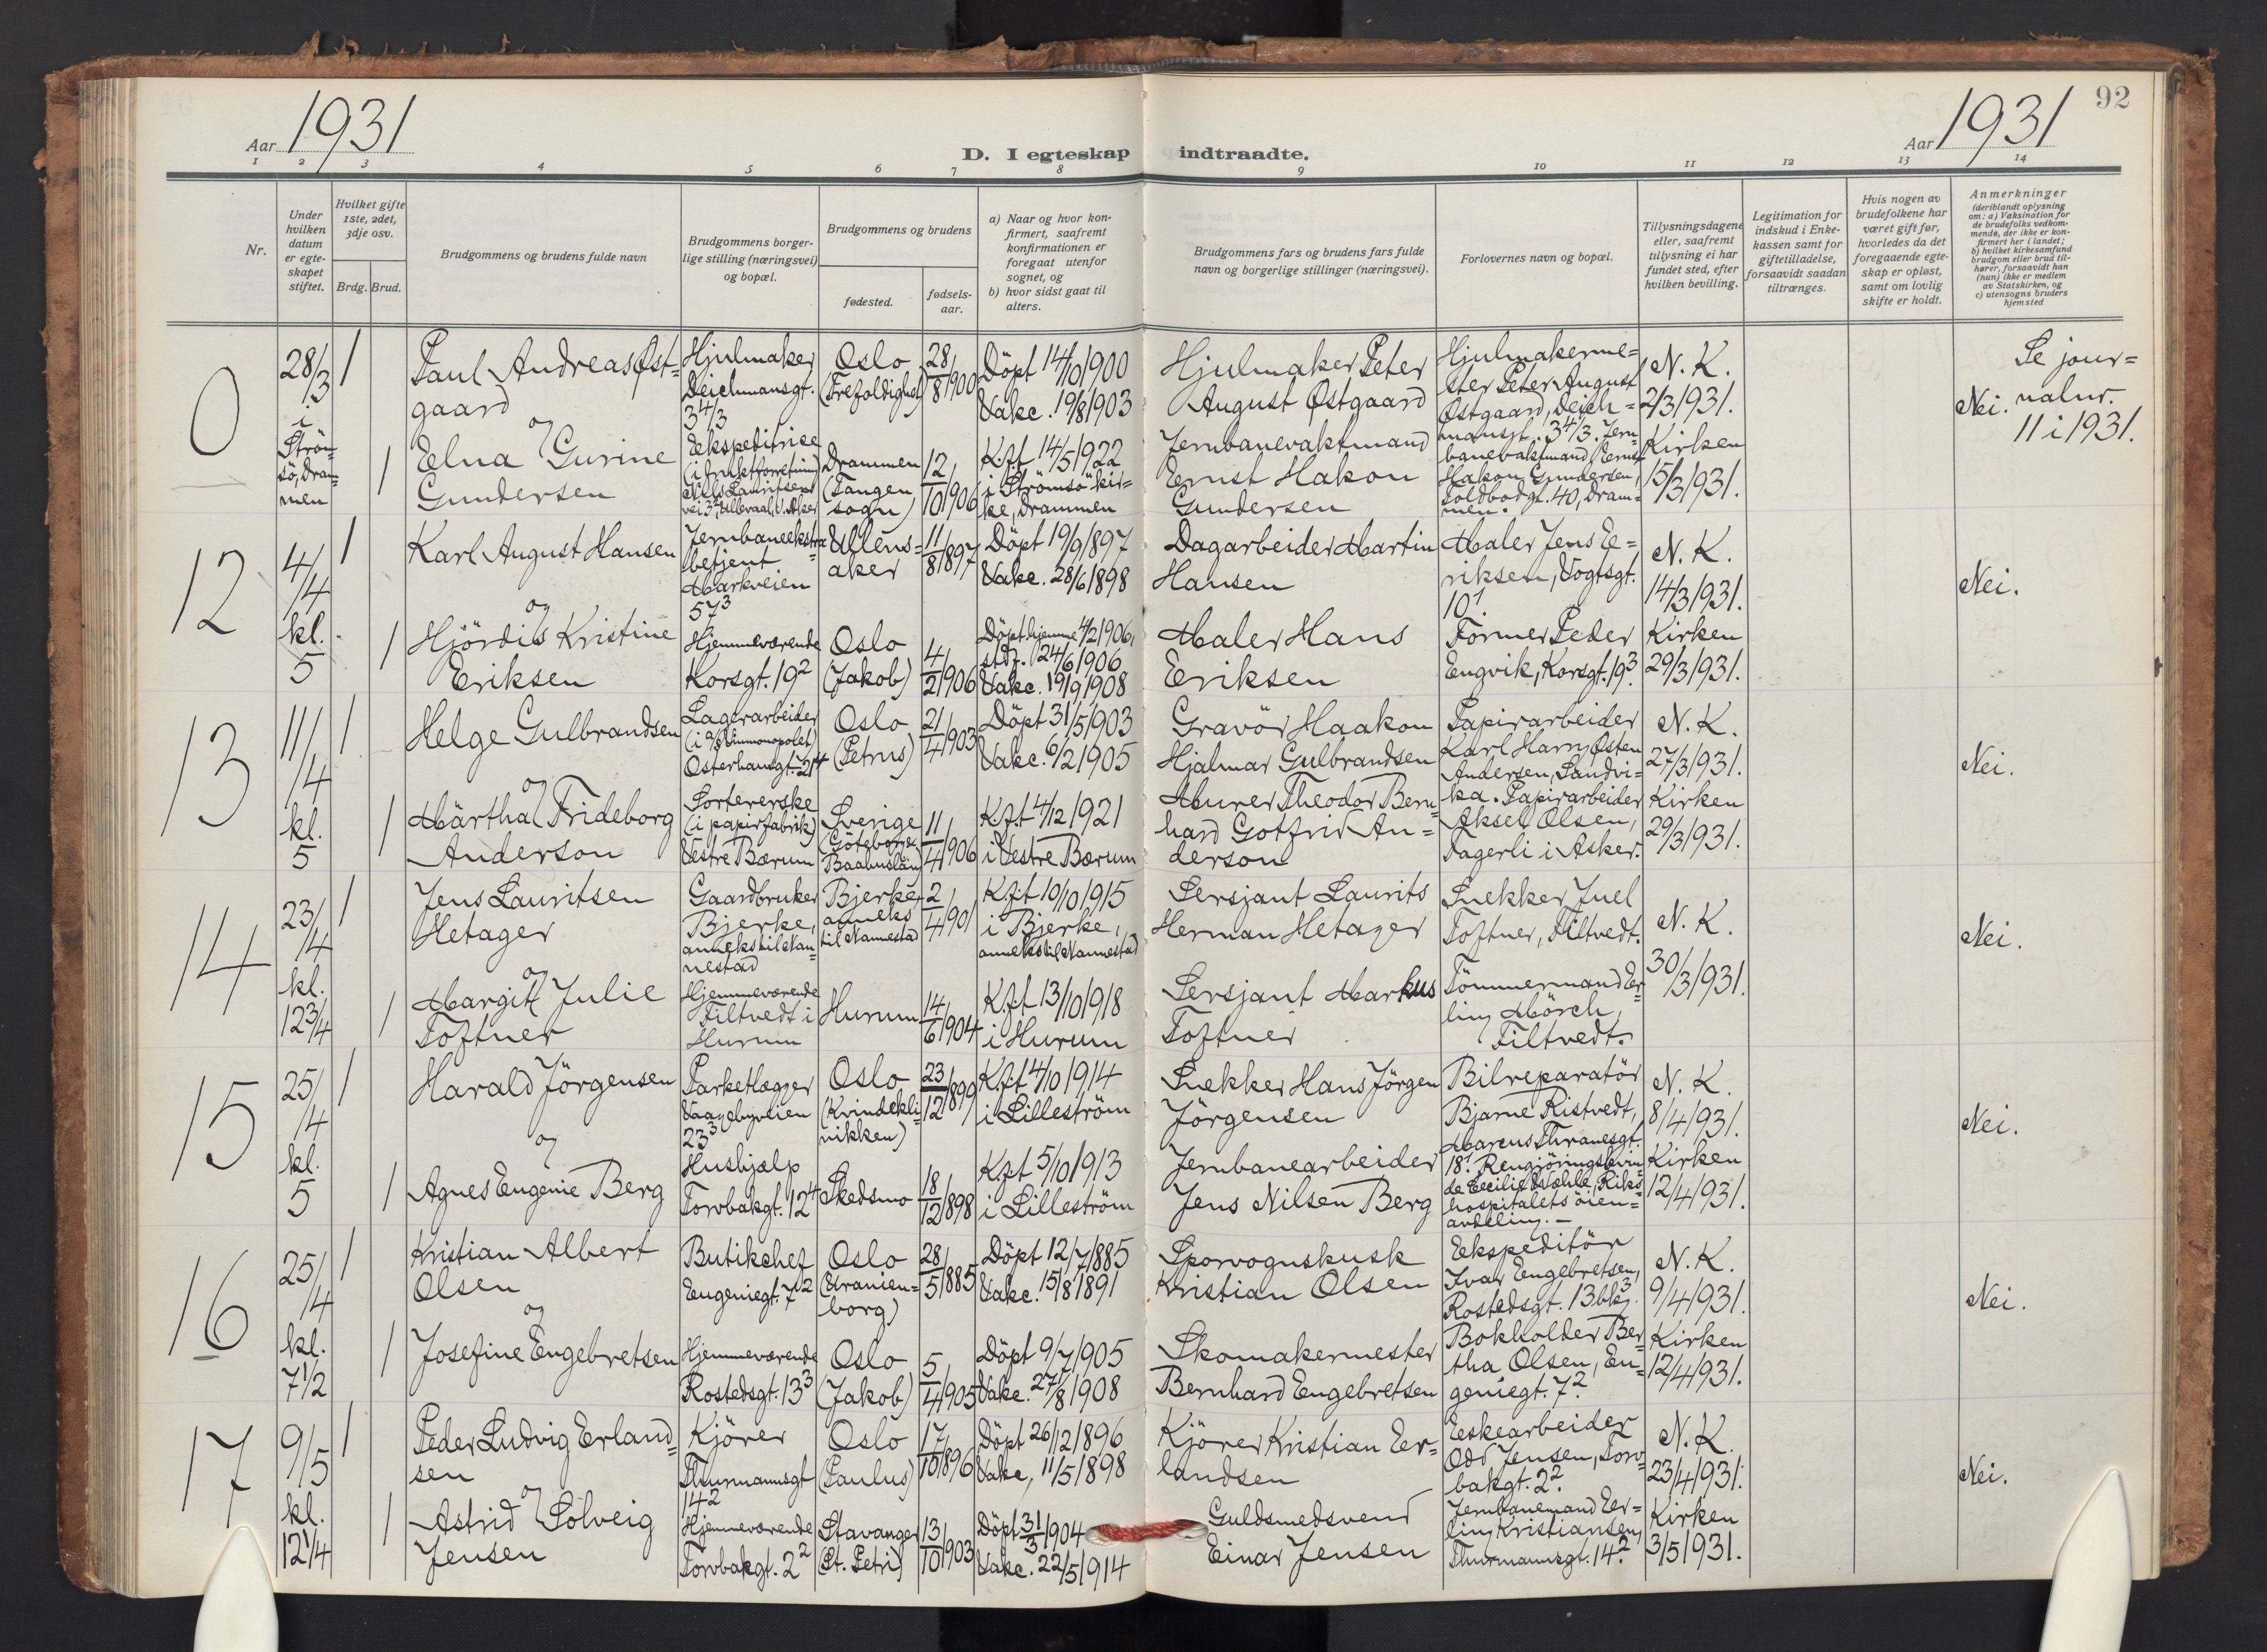 92
Aar 1931
D. I egteskap indtraadte.
Aar 1931
1 2 3 4 5 6 7 8 9 10 11 12 13 14
Nr.
Under
hvilken
datum
er egte-
skapet
stiftet.
Hvilket gifte
1ste, 2det,
3dje osv.
Brdg. Brud.
Brudgommens og brudens fulde navn
Brudgommens borger-
lige stilling (næringsvei)
og bopæl.
Brudgommens og brudens
fødested.
fødsels-
aar.
a) Naar og hvor kon-
firmert, saafremt
konfirmationen er
foregaat utenfor
sognet, og
b) hvor sidst gaat til
alters.
Brudgommens fars og brudens fars fulde
navn og borgerlige stillinger (næringsvei).
Forlovernes navn og bopæl.
Tillysningsdagene
eller, saafremt
tillysning ei har
fundet sted, efter
hvilken bevilling.
Legitimation for
indskud i Enke-
kassen samt for
giftetilladelse,
forsaavidt saadan
tiltrænges.
Hvis nogen av
brudefolkene har
været gift før,
hvorledes da det
foregaaende egte-
skap er opløst,
samt om lovlig
skifte er holdt.
Anmerkninger
(deriblandt oplysning
om: a) Vaksination for
de brudefolks vedkom-
mende, der ikke er kon-
firmert her i landet;
b) hvilket kirkesamfund
brudgom eller brud til-
hører, forsaavidt han
(hun) ikke er medlem
av Statskirken, og
c) utensogns bruders
hjemsted
0
28/3
i
Ström-
sö, Dram-
men
1
Paul Andreas Øst-
gaard
og
Hjulmaker
Deichmansgt.
34/3
Oslo
(Trefoldighed)
28/8 1900
Döpt 14/10 1900
Vakc. 19/8 1903
Hjulmaker Peter
August Østgaard
Hjulmakerme-
ster Peter August
Østgaard, Deich-
mansgt. 34/3. Jern-
banevaktmand Ernst
Hakon Gundersen,
Toldbodgt. 40, Dram-
men.
N. K.
2/3 1931.
Kirken
15/3 1931.
Nei.
Se jour-
nalnr.
11 i 1931.
1
Elna Gurine
Gundersen
Ekspeditrice
Drammen
(Tangen
sogn)
12/10 1906
Kzt 14/5 1922
i Strömsö kir-
ke, Drammen
Jernbanevaktmand
Ernst Hakon
Gundersen
12
4/4
kl.
5
1
Karl August Hansen
og
Jernbaneekstra-
betjent
Markveien
57³
Ullens-
aker
11/8 1897
Döpt 19/9 1897
Vakc. 28/6 1898
Dagarbeider Martin
Hansen
Maler Jens E-
riksen, Vogtsgt.
10¹.
N. K.
14/3 1931.
Nei.
1
Hjördis Kristine
Eriksen
Hjemmeværende
Korsgt. 19²
Oslo
(Jakob)
4/2 1906
Döpt hjemme 4/2 1906,
stdf. 24/6 1906
Vakc. 19/9 1908
Maler Hans
Eriksen
Former Peder
Engvik, Korsgt. 19³.
Kirken
29/3 1931.
13
11/4
kl.
5
1
Helge Gulbrandsen
og
Lagerarbeider
(i a/s Vinmonopolet)
Osterhausgt. 21⁴
Oslo
(Petrus)
21/4 1903
Döpt 31/5 1903
Vakc. 6/2 1905
Gravör Haakon
Hjalmar Gulbrandsen
Papirarbeider
Karl Harry Østen
Andersen, Sandvi-
ka. Papirarbeider
Aksel Olsen,
Fagerli i Asker.
N. K.
27/3 1931.
Kirken
29/3 1931.
Nei.
1
Märtha Frideborg
Anderson
Sortererske
(i papirfabrik)
Vestre Bærum
Sverige
11/4 1906
Kzt 4/12 1921
i Vestre Bærum
Murer Theodor Bern-
hard Gotfrid An-
derson
14
23/4
kl.
12¾
1
Jens Lauritsen
Hetager
og
Gaardbruker
Bjerke,
anneks til Nan-
nestad
Bjerke,
anneks
til Nannestad
2/4 1901
Kzt 10/10 1915
i Bjerke,
anneks til Nannestad
Sersjant Laurits
Herman Hetager
Snekker Juel
Toftner, Filtvedt.
N. K.
30/3 1931.
Nei.
1
Margit Julie
Toftner
Hjemmeværende
Filtvedt i
Hurum
Hurum
14/6 1904
Kzt 13/10 1918
i Hurum
Sersjant Markus
Toftner
Tömmermand Er-
ling Mörch,
Filtvedt.
15
25/4
kl.
5
1
Harald Jörgensen
og
Parketlægger
Vaagebyveien
23³
Oslo
(Kvindekli-
nikken)
23/12 1899
Kzt 4/10 1914
i Lilleström
Snekker Hans Jörgen
Jörgensen
Bilreparatör
Bjarne Ristvedt,
Marcus Thranesgt.
18¹. Rengjöringskvin-
de Cecilie Mæhle, Riks-
hospitalets öien-
avdeling.—
N. K.
8/4 1931.
Kirken
12/4 1931.
Nei.
1
Agnes Eugenie Berg
Hushjælp
Torvbakgt. 12⁴
Skedsmo
18/12 1898
Kzt 5/10 1913
i Lilleström
Jernbanearbeider
Jens Nilsen Berg
16
25/4
kl.
7½
1
Kristian Albert
Olsen
og
Butikchef
Eugeniegt. 7²
Oslo
(Uranien-
borg)
28/5 1885
Döpt 12/7 1885
Vakc. 15/8 1891
Sporvognskusk
Kristian Olsen
Ekspeditör
Ivar Engebretsen,
Rostedsgt. 13 bk³.
Bokholder Ber-
tha Olsen, Eu-
geniegt. 7².
N. K.
9/4 1931.
Kirken
12/4 1931.
Nei.
1
Josefine Engebretsen
Hjemmeværende
Rostedsgt. 13³
Oslo
(Jakob)
5/4 1905
Döpt 9/7 1905
Vakc. 27/8 1908
Skomakermester
Bernhard Engebretsen
17
9/5
kl.
12¼
1
Peder Ludvig Erland-
sen
og
Kjörer
Thurmannsgt
14²
Oslo
(Paulus)
17/10 1896
Döpt 26/12 1896
Vakc. 11/5 1898
Kjörer Kristian Er-
landsen
Eskearbeider
Odd Jensen, Torv-
bakgt. 2².
Jernbanemand Er-
ling Kristiansen,
Thurmannsgt. 14².
N. K.
23/4 1931.
Kirken
3/5 1931.
Nei.
1
Astrid Solveig
Jensen
Hjemmeværende
Torvbakgt. 2²
Stavanger
(St. Petri)
13/10 1903
Döpt 31/3 1904
Vakc. 22/5 1914
Guldsmedsvend
Einar Jensen